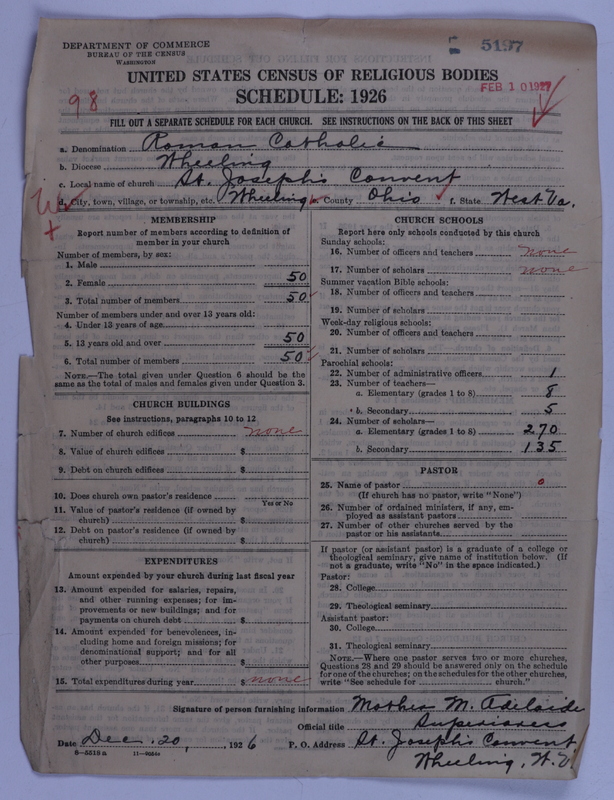 DEPARTMENT OF COMMERCE
BUREAU OF THE CENSUS
WASHINGTON
5197
UNITED STATES CENSUS OF RELIGIOUS BODIES
SCHEDULE: 1926
98
FEB 10 1927
FILL OUT A SEPARATE SCHEDULE FOR EACH CHURCH. SEE INSTRUCTIONS ON THE BACK OF THIS SHEET
a. Denomination Roman Catholic
b. Diocese Wheeling
c. Local name of church St. Joseph's Convent
d. City, town, village, or township, etc. Wheeling e. County Ohio f. State West Va.
MEMBERSHIP
Report number of members according to definition of
member in your church
Number of members, by sex:
1. Male
2. Female 50
3. Total number of members 50
Number of members under and over 13 years old:
4. Under 13 years of age
5. 13 years old and over 50
6. Total number of members 50
NOTE.—The total given under Question 6 should be the
same as the total of males and females given under Question 3.
CHURCH BUILDINGS
See instructions, paragraphs 10 to 12
7. Number of church edifices none
8. Value of church edifices $
9. Debt on church edifices $
10. Does church own pastor's residence
Yes or No
11. Value of pastor's residence (if owned by
church) $
12. Debt on pastor's residence (if owned by
church) $
EXPENDITURES
Amount expended by your church during last fiscal year
13. Amount expended for salaries, repairs,
and other running expenses; for im-
provements or new buildings; and for
payments on church debt $
14. Amount expended for benevolences, in-
cluding home and foreign missions; for
denominational support; and for all
other purposes $
15. Total expenditures during year $ none
CHURCH SCHOOLS
Report here only schools conducted by this church
Sunday schools:
16. Number of officers and teachers none
17. Number of scholars none
Summer vacation Bible schools:
18. Number of officers and teachers
19. Number of scholars
Week-day religious schools:
20. Number of officers and teachers
21. Number of scholars
Parochial schools:
22. Number of administrative officers 1
23. Number of teachers—
a. Elementary (grades 1 to 8) 8
b. Secondary 5
24. Number of scholars—
a. Elementary (grades 1 to 8) 270
b. Secondary 135
PASTOR
25. Name of pastor 0
(If church has no pastor, write "None")
26. Number of ordained ministers, if any, em-
ployed as assistant pastors
27. Number of other churches served by the
pastor or his assistants
If pastor (or assistant pastor) is a graduate of a college or
theological seminary, give name of institution below. (If
not a graduate, write "No" in the space indicated.)
Pastor:
28. College
29. Theological seminary
Assistant pastor:
30. College
31. Theological seminary
NOTE.—Where one pastor serves two or more churches,
Questions 28 and 29 should be answered only on the schedule
for one of the churches; on the schedules for the other churches,
write "See schedule for church."
Signature of person furnishing information Mother M. Adelaide
Official title Superioress
Date Dec. 20, 1926 P. O. Address St. Joseph's Convent
Wheeling, W. V.